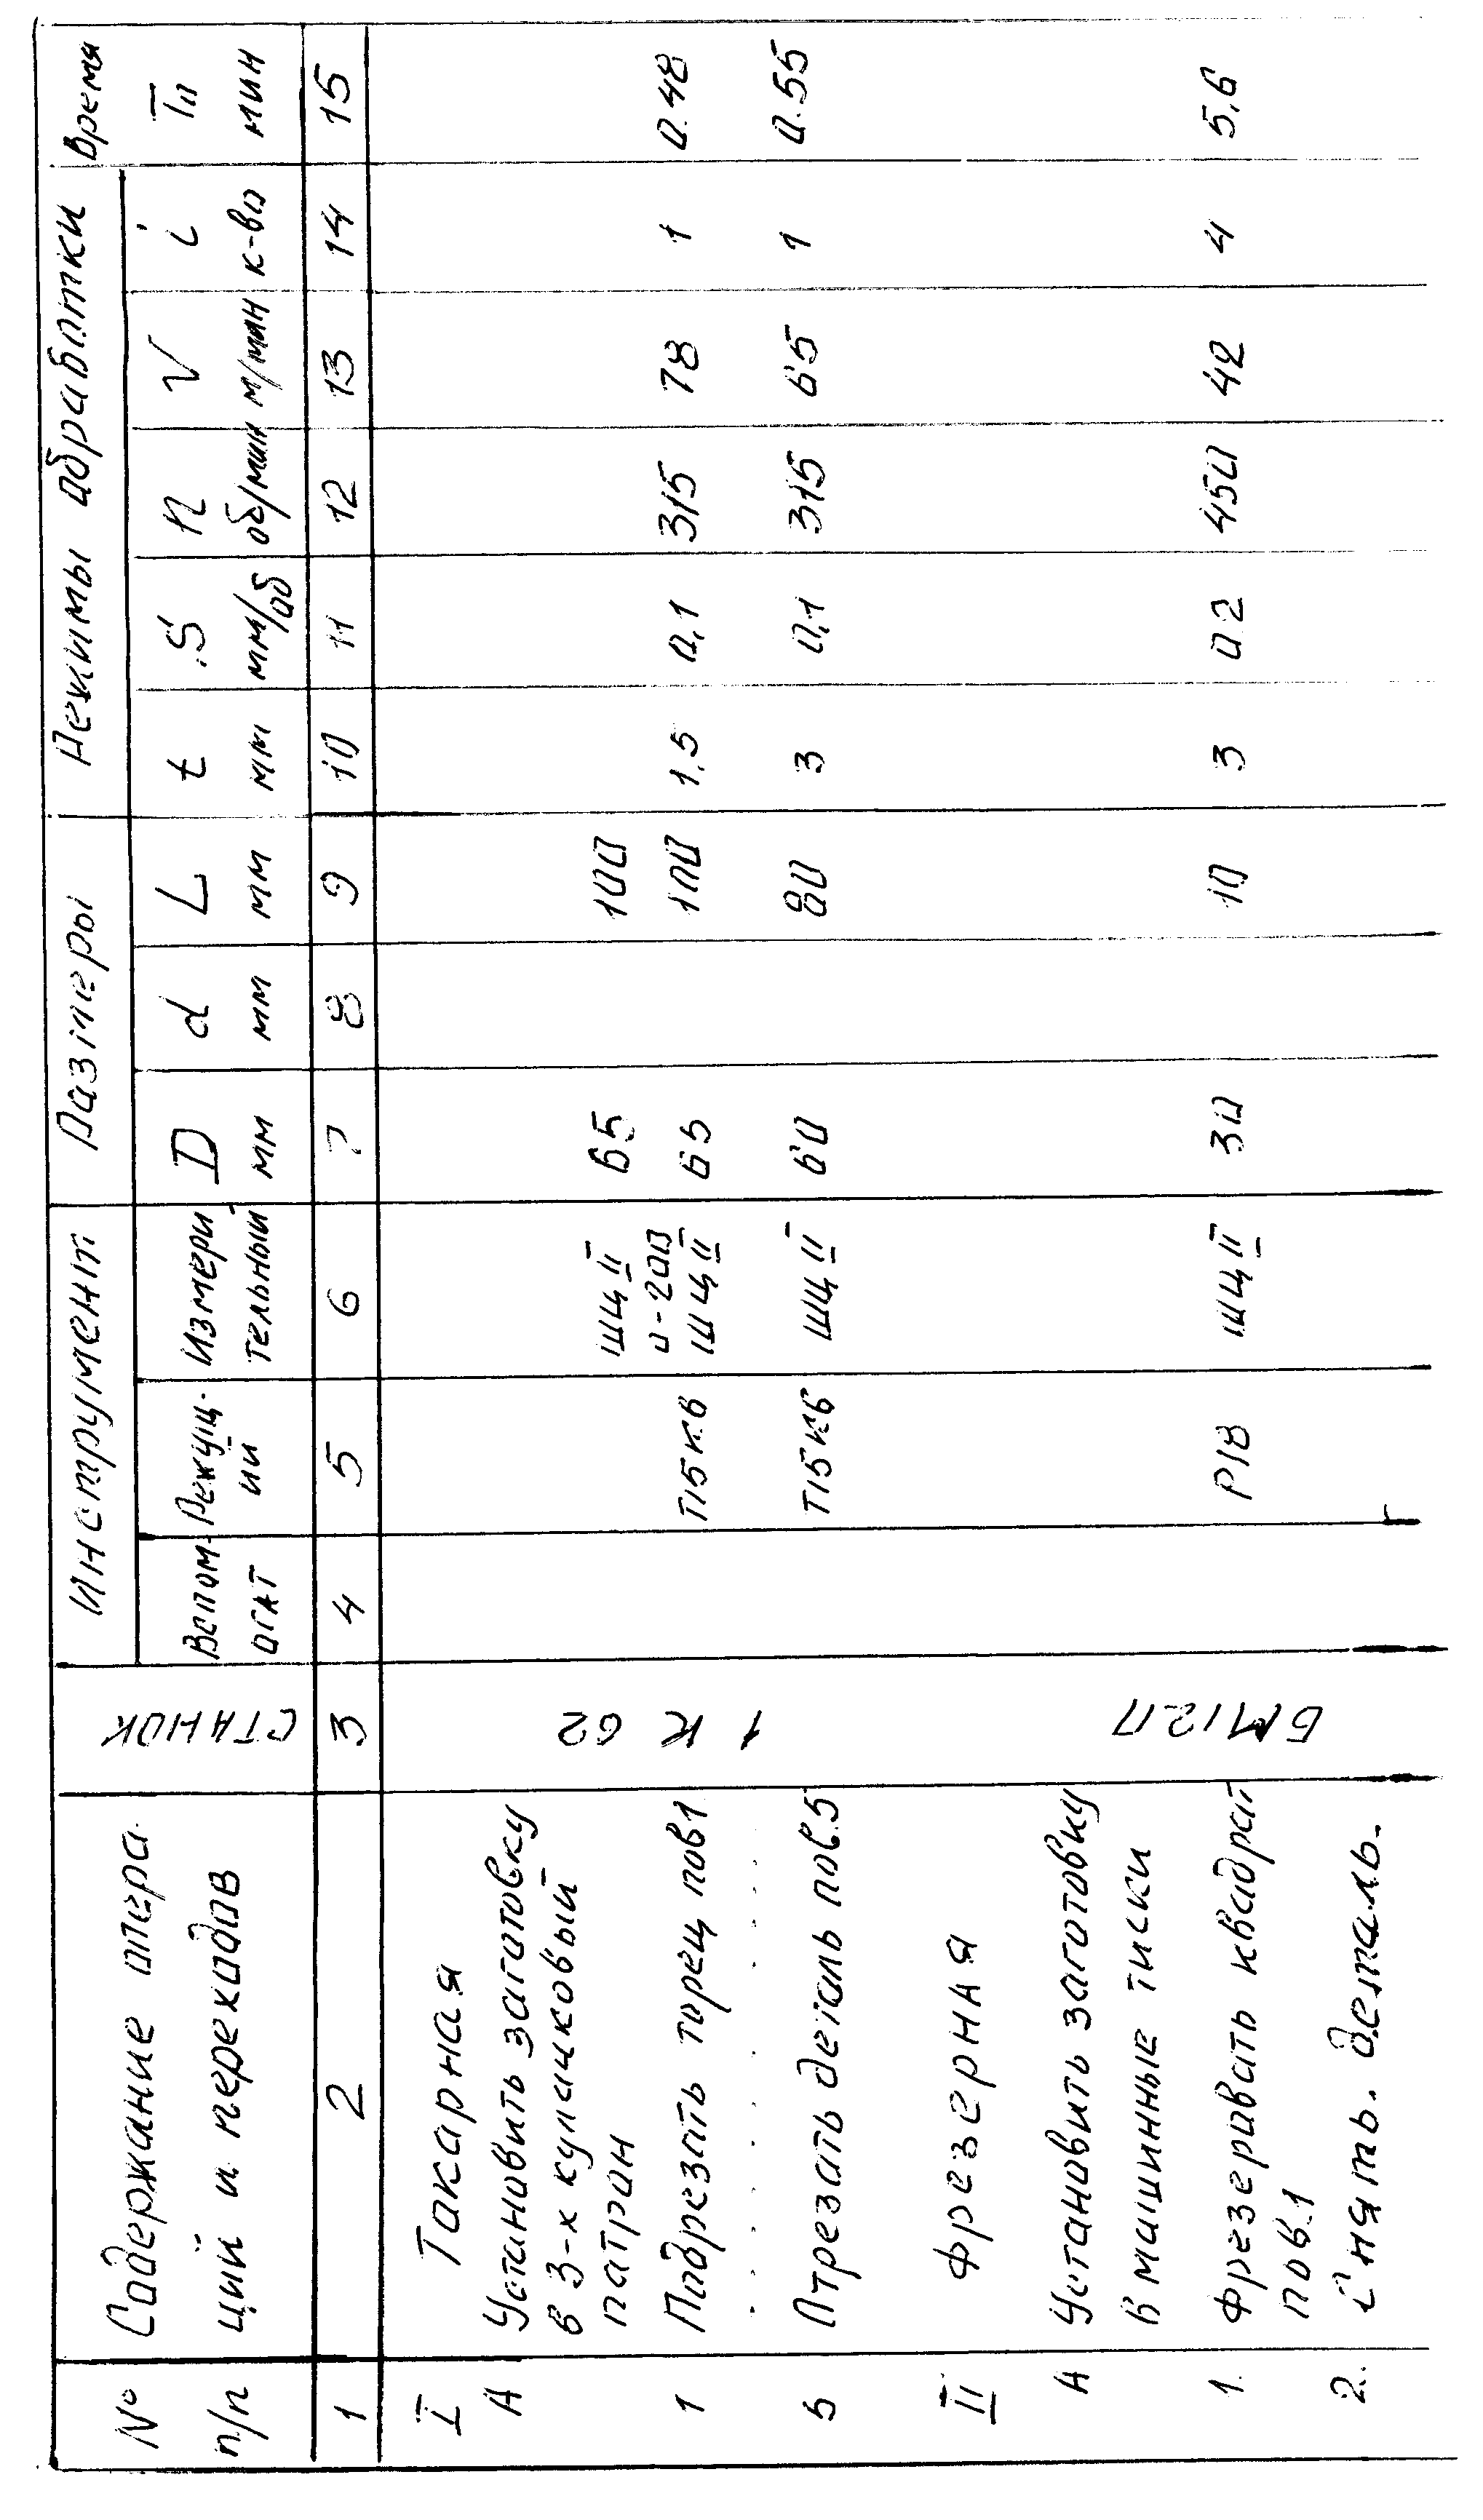 № п/п
Содержание опера
ций и переходов
СТАНОК
Инструмент
Вспом-
огат
Режущ.
ий
Измери
тельный
Размеры
D
мм
d
мм
L
мм
Режимы обработки
t
мм
S
мм/об
n
об/мин
V
м/мин
i
к-во
Время
Tп
мин
1 2 3 4 5 6 7 8 9 10 11 12 13 14 15
I Токарная
А Установить заготовку
в 3-х кулачковый
патрон
ШЦ II 65 100
0-200
1 Подрезать торец пов1 Т15К6 ШЦ II 65 100 1,5 0,1 315 78 1 0.48
. . . . . . . . .
5 Отрезать деталь пов.5 Т15К6 ШЦ II 60 80 3 0,1 315 65 1 0.55
1 К 62
II Фрезерная
А Установить заготовку
в машинные тиски
6М12П
1. Фрезеровать квадрат Р18 ШЦ II 30 10 3 0.2 450 42 4 5,6
пов.1
2. Снять. деталь.